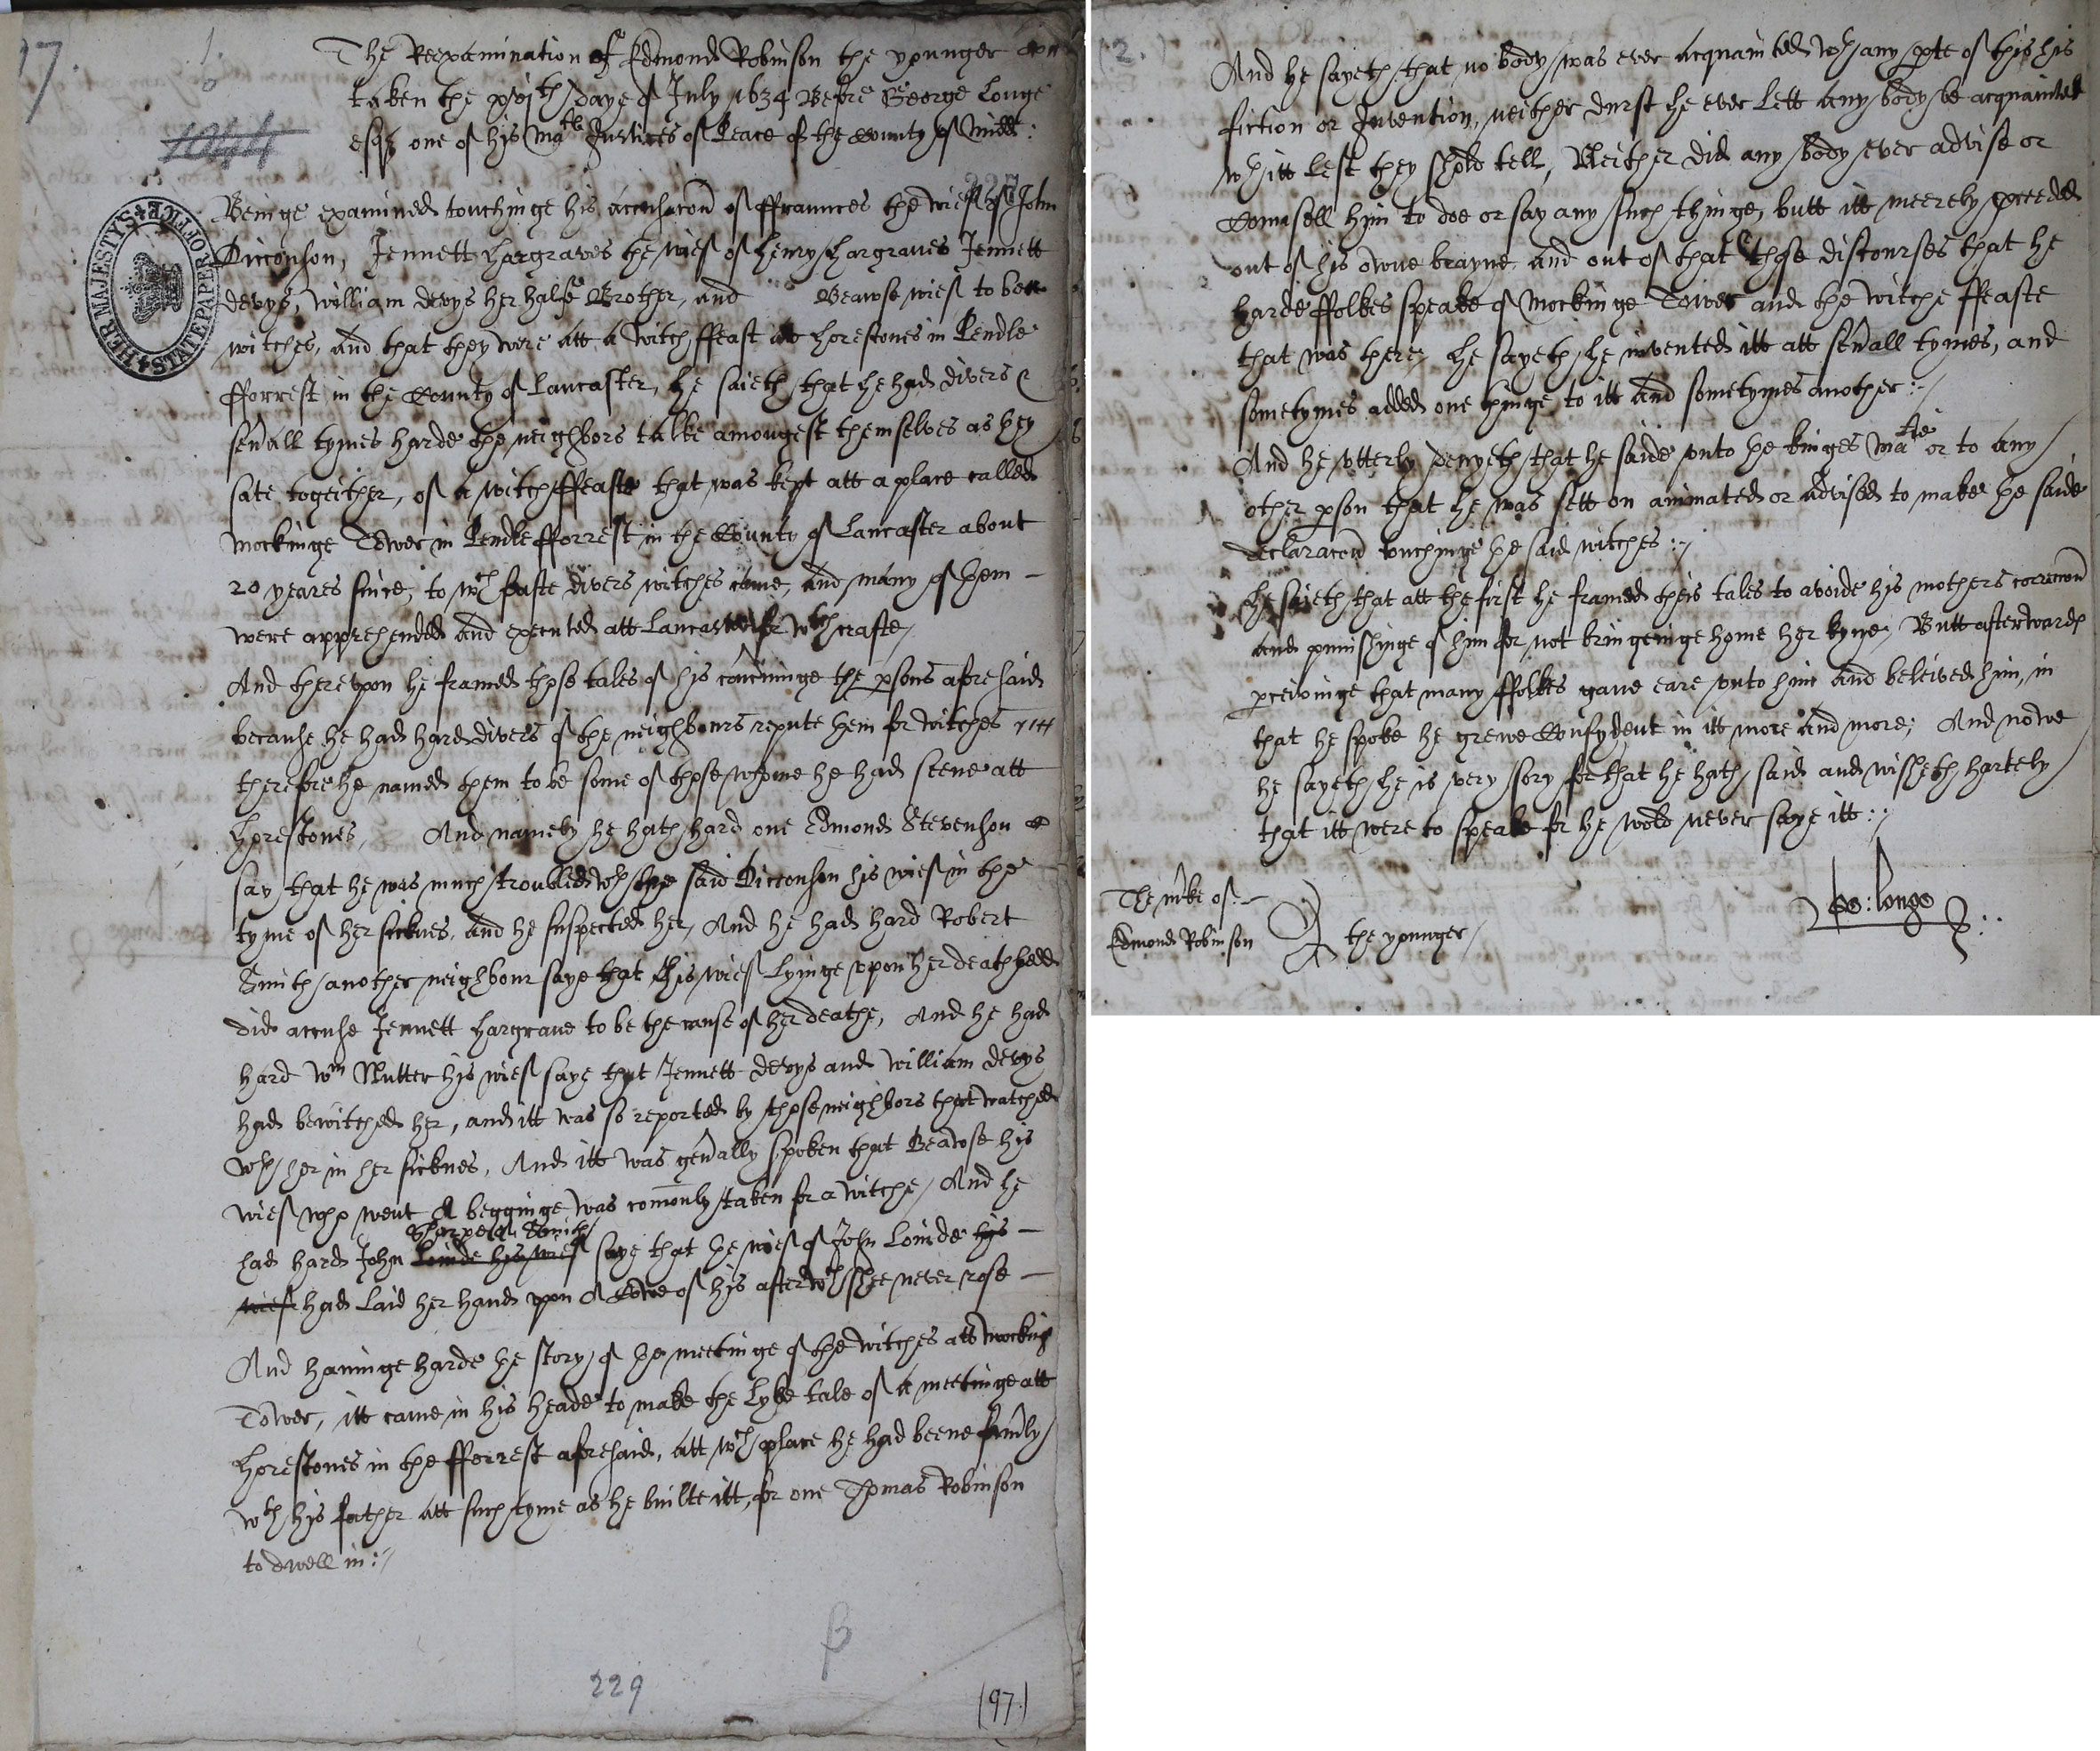 17.
1.
The Reexamination of Edmond Robinson the younger
taken the xvith daye of July 1634 Before George Longe
esqr one of his Maties Justices of Peace of the County of Midd:
1044
Beinge examined touchinge his accusacon of ffraunces the wief of John
Dicconson, Jennett Hargraves the wief of Henry Hargraves Jennett
devys, William devys her halfe Brother, and Beawse wief to bee
witches, and that they were att a witch ffeast att Horestones in Pendle
fforrest in the County of Lancaster, he saieth that he had divers &
sevall tymes harde the neighbors talke amongest themselves as they
sate togeither, of a witch ffeaste that was kept att a place called
Mockinge Tower in Pendle fforrest in the County of Lancaster about
20 yeares since, to wch feaste divers witches came, and many of them –
were apprehended and executed att Lancaster for witchcrafte,
And thereupon he framed those tales of his concninge the psons aforesaid
because he had hard divers of the neighbours repute them for witches
therefore he named them to be some of those whome he had seene att
Horestones, And namely he hath hard one Edmond Stevenson
say that he was much troubled wth the said Dicconson his wief in the
tyme of her sicknes, and he suspected her, And he had hard Robert
Smith another neighbour saye that his wief lyinge upon her death bedd
did accuse Jennett Hargrave to be the cause of her deathe, And he had
hard Wm Nutter his wief saye that Jennett devys and William devys
had bewitched her, and itt was so reported by those neighbors that watched
wth her in her sicknes, And itt was genally spoken that Beawse his
wief who went A begginge was comonly taken for a witche, And he
Sharpe Smith
had hard John Loinde his wief saye that the wief of John Loinde his –
wief had laid her hand upon A Cowe of his after wch shee never rose –
And havinge harde the story of the meetinge of the witches att Mockinge
Tower, itt came in his heade to make the lyke tale of a meetinge att
Horestones in the fforrest aforesaid, att wch place he had beene
wth his father att such tyme as he builte itt, for one Thomas Robinson
to dwell in:
HER MAJESTY'S STATE PAPER OFFICE
β
229
(97.)
(2.)
And he sayeth that no body was ever acquainted wth any pte of this his
fiction or Invention, neither durst he ever lett any body be acquainted
wth itt lest they shold tell, Neither did any body ever advise or
Counsell him to doe or say any such thinge, butt itt meerely pceeded
out of his owne brayne, and out of that those discourses that he
harde ffolkes speake of Mockinge Tower and the witche ffeaste
that was there, he sayeth he invented itt att sevall tymes, and
sometymes added one thinge to itt and sometymes another:
And he utterly denyeth that he saide unto the kinges Matie or to any
other pson that he was sett on animated or advised to make the saide
declaracon touchinge the said witches:
he saieth that att the first he framed theis tales to avoide his mothers correccon
and punishinge of him for not bringeinge home her kyne, Butt afterwards
pceivinge that many ffolkes gave eare unto him and beleived him, in
that he spoke he grewe Confydent in itt more and more; And nowe
he sayeth he is very sory for that he hath said and wisheth hartely
that itt were to speake for he wold never saye itt:
The mke of –
Edmond Robinson the younger
Geo: Longe